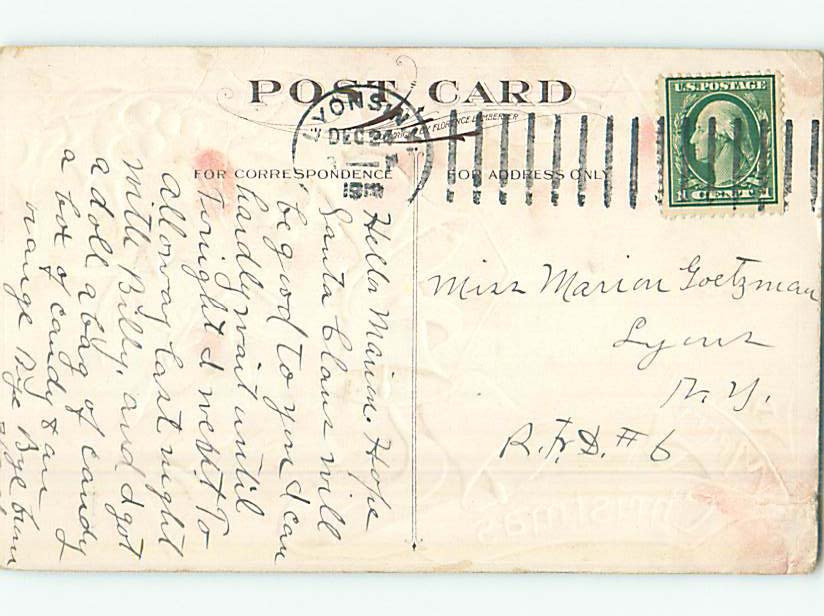 POST CARD
COPYRIGHT BY FLORENCE BAMBERGER
FOR CORRESPONDENCE
FOR ADDRESS ONLY
LYONS N.Y.
DEC 24
U.S. POSTAGE
1 CENT 1
Hello Marion. Hope
Santa Claus will
be good to you I can
hardly wait until
Tonight I went To
alloway last night
with Billy, and I got
a doll a bag of candy
a box of candy & an
orange Bye Bye from
Miss Marion Goetzman
Lyons
N.Y.
R.F.D. #6
Christmas